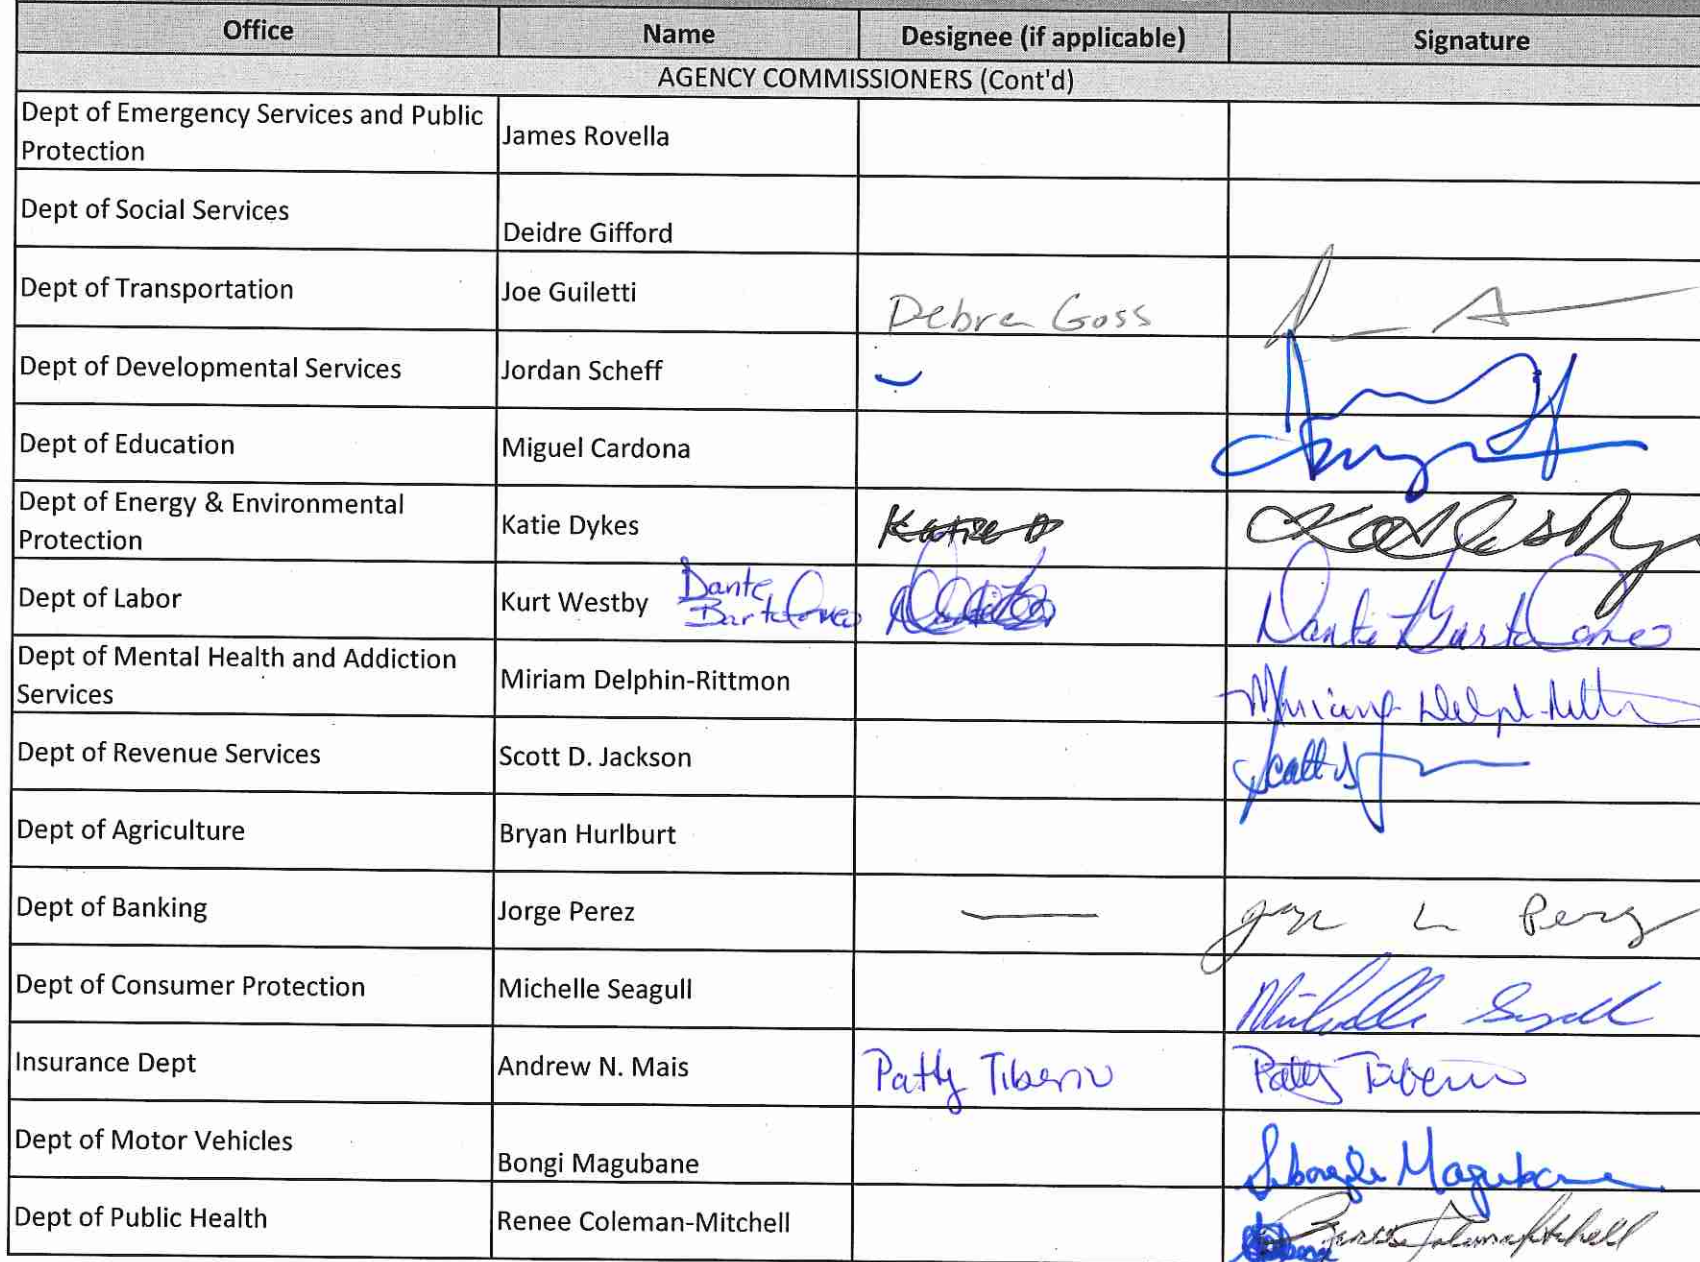 Office Name Designee (if applicable) Signature
AGENCY COMMISSIONERS (Cont'd)
Dept of Emergency Services and Public
Protection
James Rovella
Dept of Social Services
Deidre Gifford
Dept of Transportation Joe Guiletti Debra Goss
Dept of Developmental Services Jordan Scheff
Dept of Education Miguel Cardona
Dept of Energy & Environmental
Protection
Katie Dykes Katie D
Dept of Labor Kurt Westby Dante
Bartolomeo
Dante Bartolomeo
Dept of Mental Health and Addiction
Services
Miriam Delphin-Rittmon
Miriam Delph-Ritt
Dept of Revenue Services Scott D. Jackson Scott D J
Dept of Agriculture Bryan Hurlburt
Dept of Banking Jorge Perez Jorge L Perez
Dept of Consumer Protection Michelle Seagull Michelle Seagull
Insurance Dept Andrew N. Mais Patty Tiberio Patty Tiberio
Dept of Motor Vehicles
Bongi Magubane Sibongile Magubane
Dept of Public Health Renee Coleman-Mitchell Renee Coleman-Mitchell